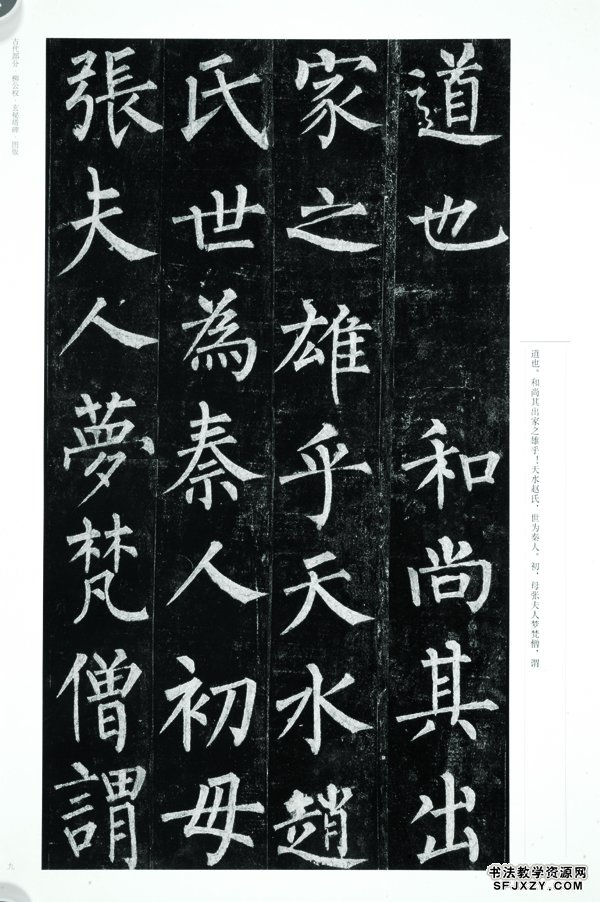 道也和尚其出
家之雄乎天水趙
氏世為秦人初母
張夫人夢梵僧謂
道也。和尚其出家之雄乎！天水赵氏，世为秦人。初，母张夫人梦梵僧，谓
古代部分 柳公权·玄秘塔碑 图版
九
书法教学资源网
SFJXZY.COM